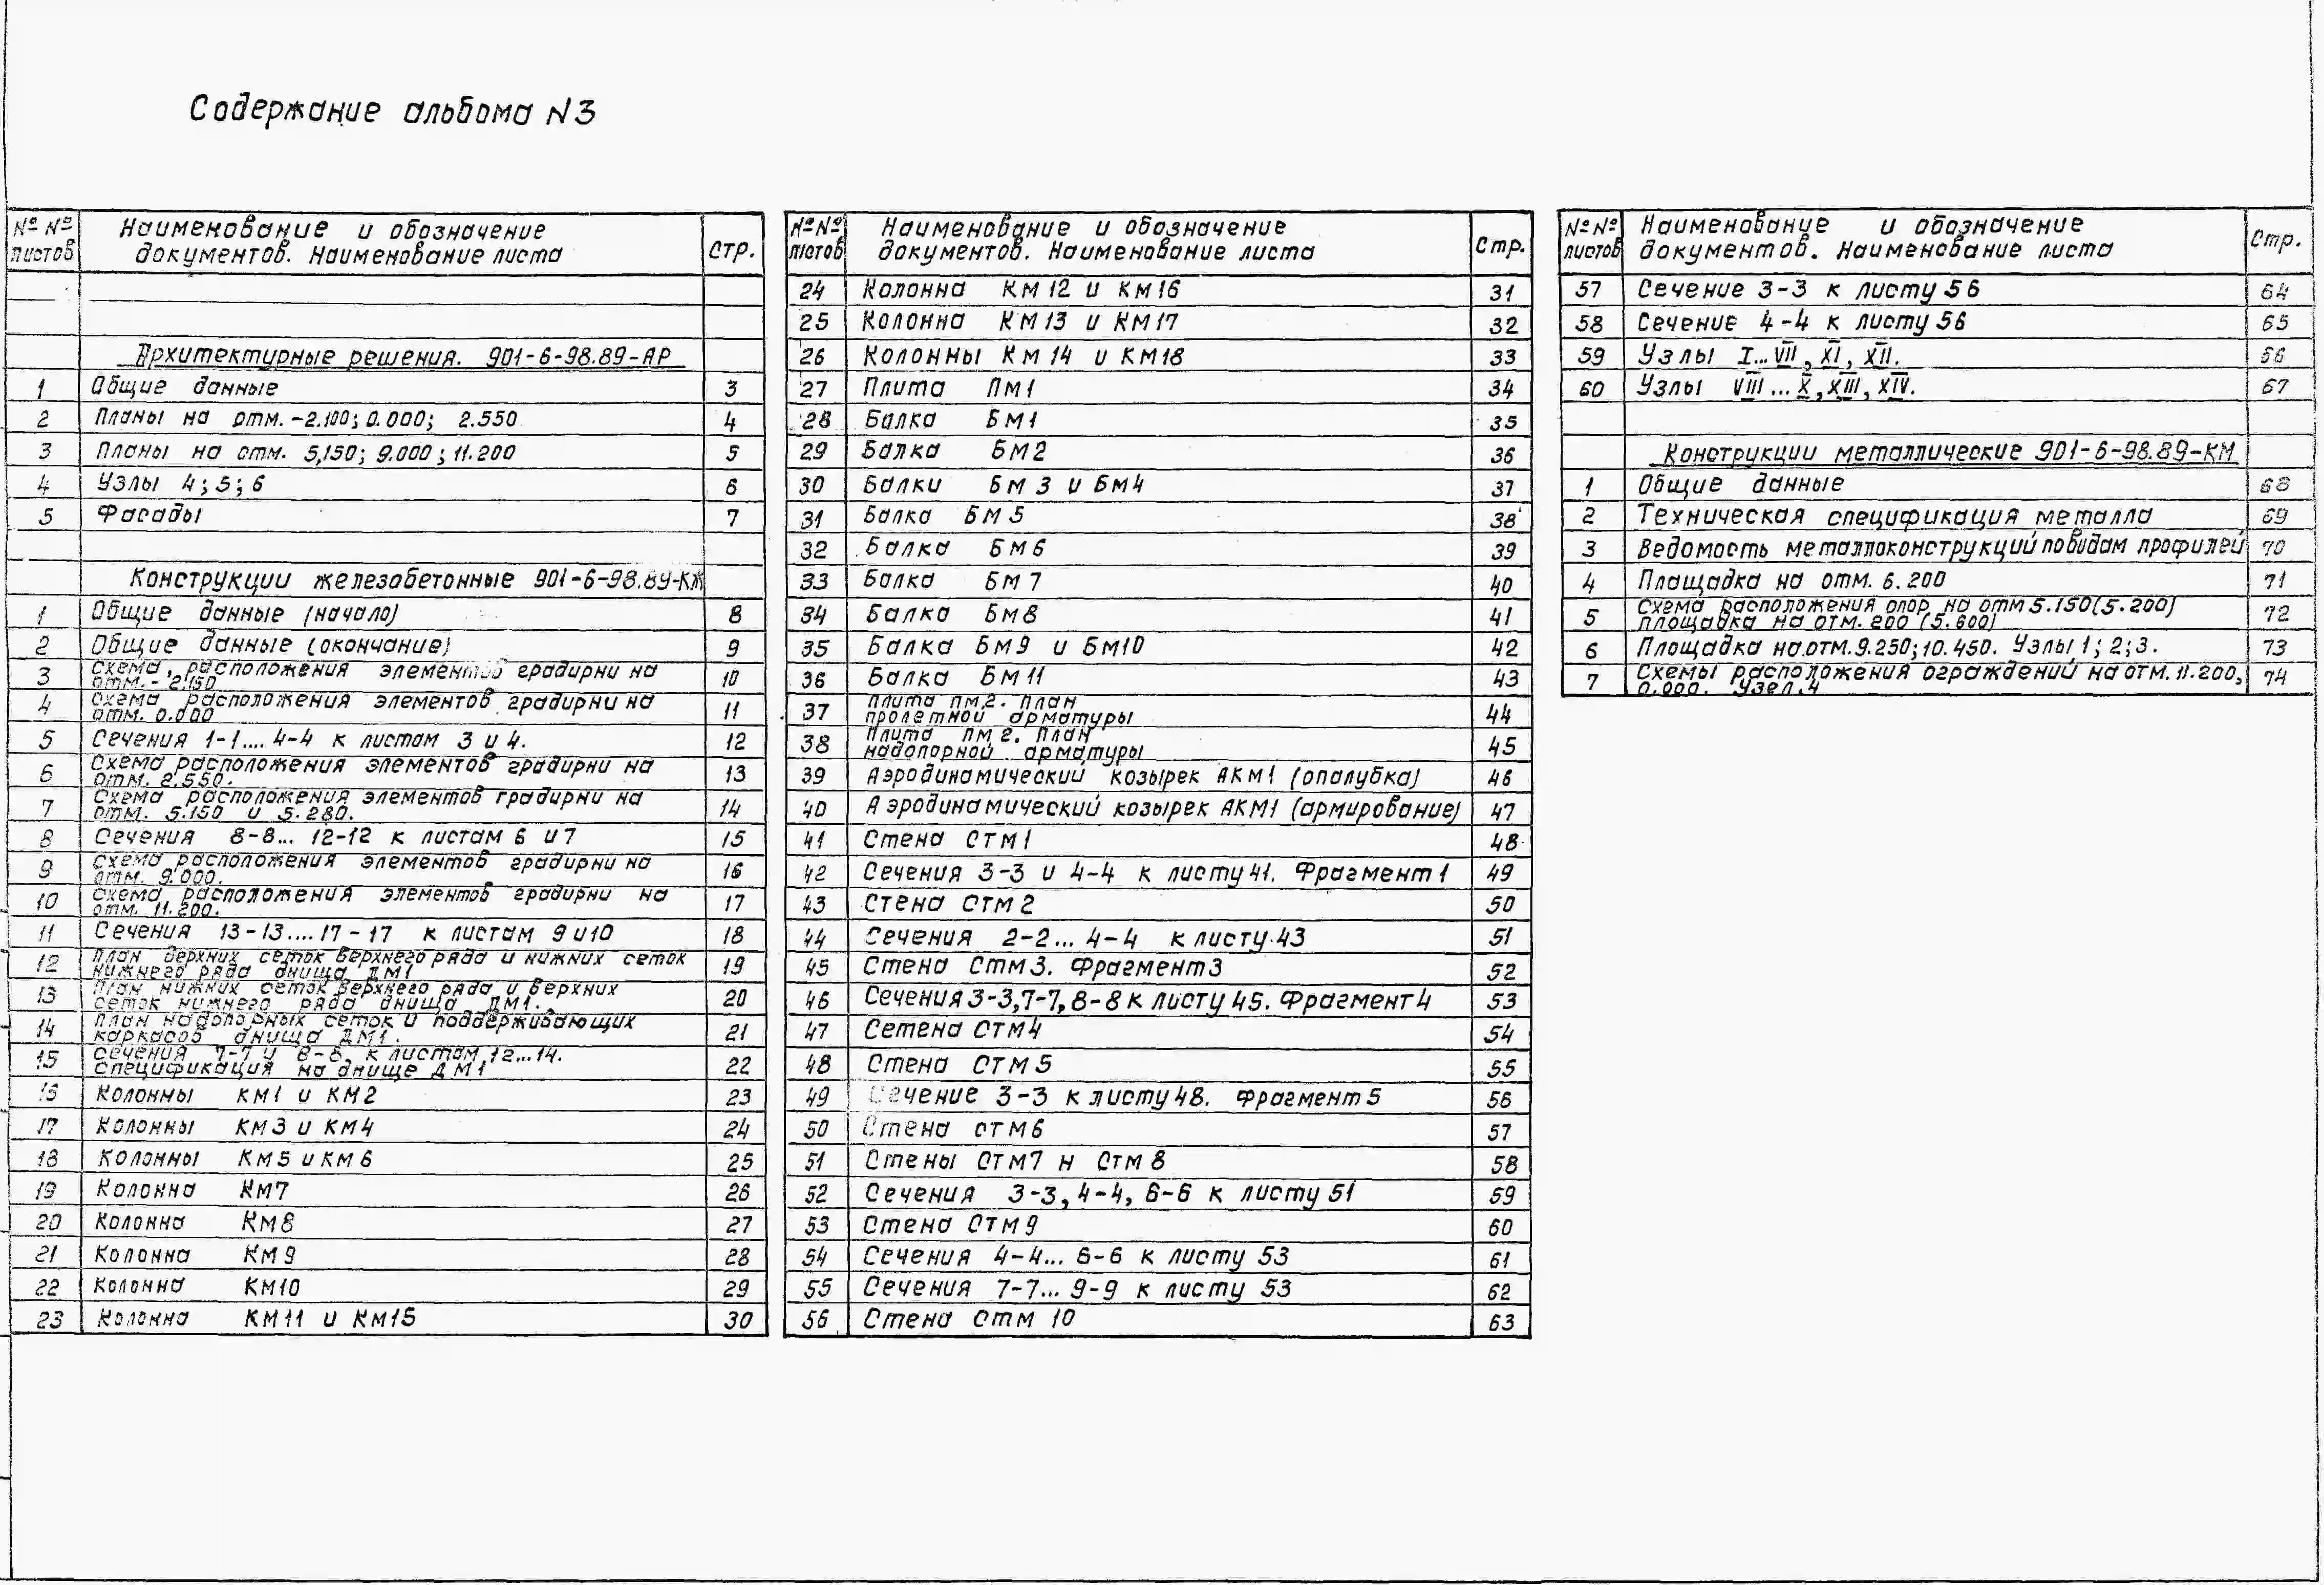 Содержание альбома N3
№ № листов | Наименование и обозначение документов. Наименование листа | Стр.
Архитектурные решения. 901-6-98.89-АР
1 | Общие данные | 3
2 | Планы на отм. -2.100; 0.000; 2.550 | 4
3 | Планы на отм. 5,150; 9.000; 11.200 | 5
4 | Узлы 4; 5; 6 | 6
5 | Фасады | 7
Конструкции железобетонные 901-6-98.89-КЖ
1 | Общие данные (начало) | 8
2 | Общие данные (окончание) | 9
3 | Схема расположения элементов градирни на
отм. - 2.150 | 10
4 | Схема расположения элементов градирни на
отм. 0.000 | 11
5 | Сечения 1-1.... 4-4 к листам 3 и 4. | 12
6 | Схема расположения элементов градирни на
отм. 2.550. | 13
7 | Схема расположения элементов градирни на
отм. 5.150 и 5.280. | 14
8 | Сечения 8-8... 12-12 к листам 6 и 7 | 15
9 | Схема расположения элементов градирни на
отм. 9.000. | 16
10 | Схема расположения элементов градирни на
отм. 11.200. | 17
11 | Сечения 13-13.... 17-17 к листам 9 и 10 | 18
12 | План верхних сеток верхнего ряда и нижних сеток
нижнего ряда днища ДМ1 | 19
13 | План нижних сеток верхнего ряда и верхних
сеток нижнего ряда днища ДМ1. | 20
14 | План надопорных сеток и поддерживающих
каркасов днища ДМ1. | 21
15 | Сечения 7-7 и 8-8 к листам 12...14.
Спецификация на днище ДМ1 | 22
16 | Колонны КМ1 и КМ2 | 23
17 | Колонны КМ3 и КМ4 | 24
18 | Колонны КМ5 и КМ6 | 25
19 | Колонна КМ7 | 26
20 | Колонна КМ8 | 27
21 | Колонна КМ9 | 28
22 | Колонна КМ10 | 29
23 | Колонна КМ11 и КМ15 | 30
№ № листов | Наименование и обозначение документов. Наименование листа | Стр.
24 | Колонна КМ12 и КМ16 | 31
25 | Колонна КМ13 и КМ17 | 32
26 | Колонны КМ14 и КМ18 | 33
27 | Плита ПМ1 | 34
28 | Балка БМ1 | 35
29 | Балка БМ2 | 36
30 | Балки БМ3 и БМ4 | 37
31 | Балка БМ5 | 38
32 | Балка БМ6 | 39
33 | Балка БМ7 | 40
34 | Балка БМ8 | 41
35 | Балка БМ9 и БМ10 | 42
36 | Балка БМ11 | 43
37 | Плита ПМ2. План
пролетной арматуры | 44
38 | Плита ПМ2. План
надопорной арматуры | 45
39 | Аэродинамический козырек АКМ1 (опалубка) | 46
40 | Аэродинамический козырек АКМ1 (армирование) | 47
41 | Стена СТМ1 | 48
42 | Сечения 3-3 и 4-4 к листу 41. Фрагмент 1 | 49
43 | Стена СТМ2 | 50
44 | Сечения 2-2... 4-4 к листу 43 | 51
45 | Стена СТМ3. Фрагмент 3 | 52
46 | Сечения 3-3, 7-7, 8-8 к листу 45. Фрагмент 4 | 53
47 | Сетена СТМ4 | 54
48 | Стена СТМ5 | 55
49 | Сечение 3-3 к листу 48. Фрагмент 5 | 56
50 | Стена СТМ6 | 57
51 | Стены СТМ7 н СТМ8 | 58
52 | Сечения 3-3, 4-4, 6-6 к листу 51 | 59
53 | Стена СТМ9 | 60
54 | Сечения 4-4... 6-6 к листу 53 | 61
55 | Сечения 7-7... 9-9 к листу 53 | 62
56 | Стена СТМ 10 | 63
№ № листов | Наименование и обозначение документов. Наименование листа | Стр.
57 | Сечение 3-3 к листу 56 | 64
58 | Сечение 4-4 к листу 56 | 65
59 | Узлы I... VII, XI, XII. | 66
60 | Узлы VIII ... X, XIII, XIV. | 67
Конструкции металлические 901-6-98.89-КМ
1 | Общие данные | 68
2 | Техническая спецификация металла | 69
3 | Ведомость металлоконструкций по видам профилей | 70
4 | Площадка на отм. 6.200 | 71
5 | Схема расположения опор на отм 5.150 (5.200)
площадка на отм. 200 (5.600) | 72
6 | Площадка на отм. 9.250; 10.450. Узлы 1; 2; 3. | 73
7 | Схемы расположения ограждений на отм. 11.200,
0.000. Узел 4 | 74